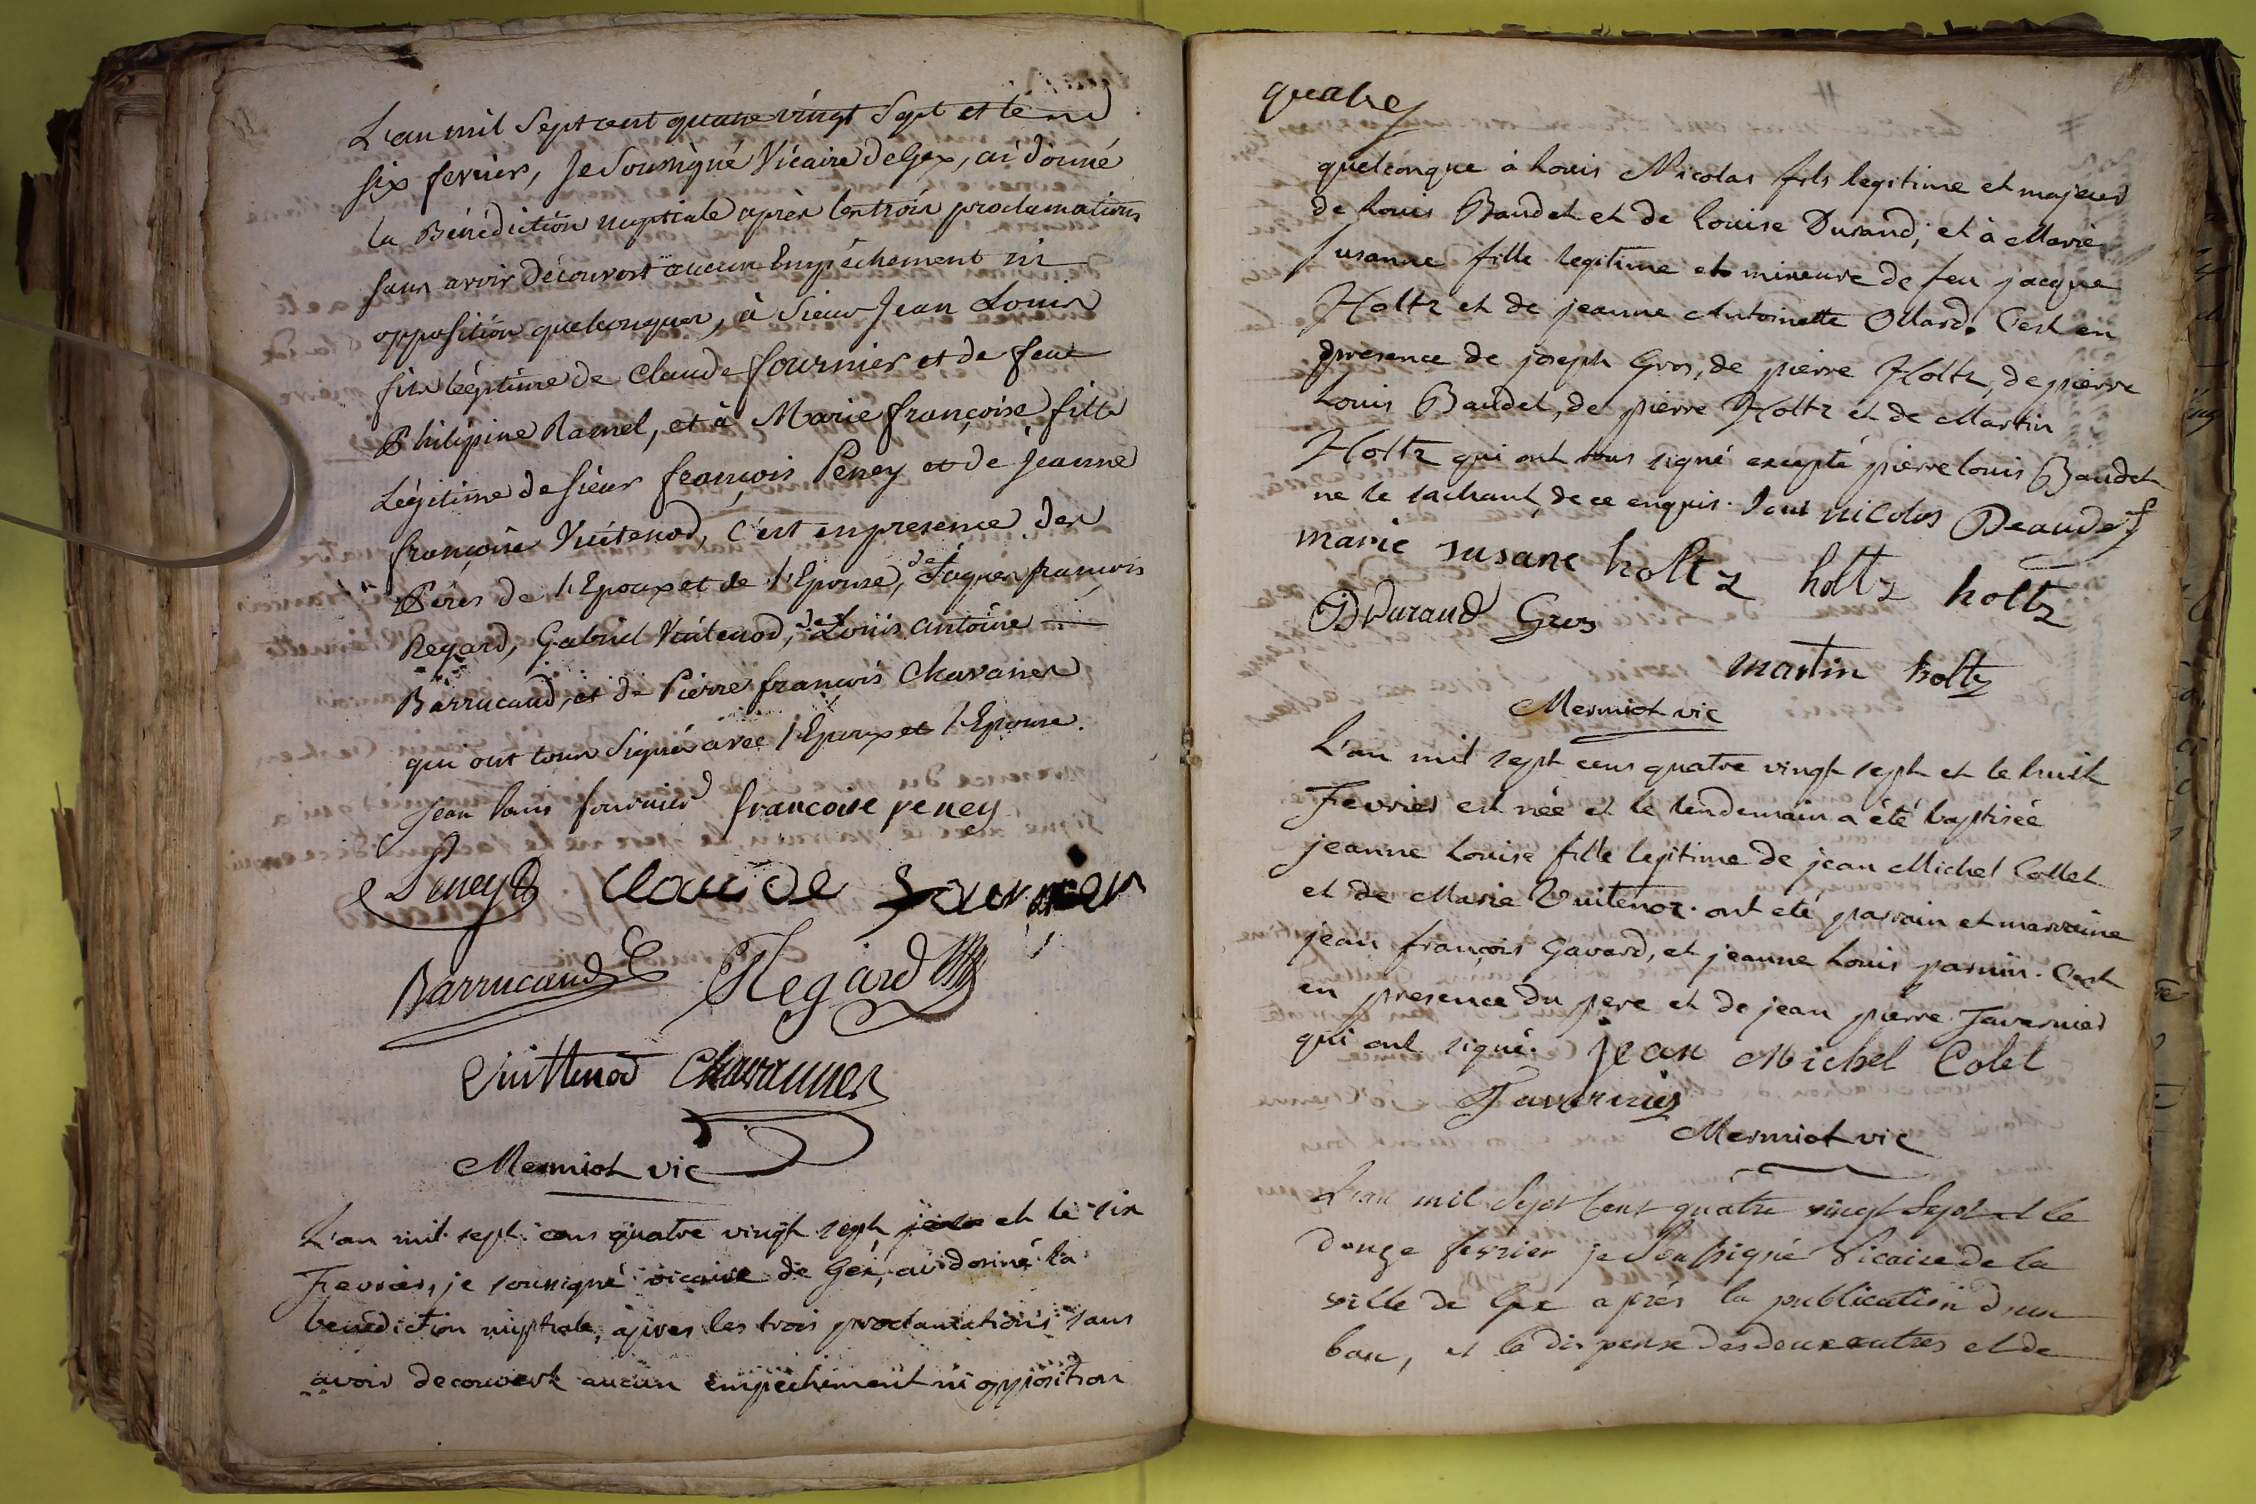 L'an mil Sept cent quatre vingt Sept et le
six fevrier, Je Soussigné Vicaire de Gex, ai donné
la Bénédiction nuptiale après les trois proclamations
sans avoir découvert aucun Empéchement ni
opposition quelconques, à Sieur Jean Louis
fils légitime de Claude fournier et de feue
Philipine Ramel, et à Marie françoise fille
Légitime de sieur françois Peney et de Jeanne
françoise Vuitenod, C'est en presence des
Pères de l'Epoux et de l'Epouse, de Jaques françois
Regard, Gabriel Vuitenod, de Louis Antoine
Barrucand, et de Pierre françois Chavanes
qui ont tous Signés avec l'Epoux et l'Epouse.
Jean louis fournier francoise peney
Peney Claude fournier
Barrucand Regard
Vuittenod Chavannes
Mermiot vic
L'an mil sept cens quatre vingt sept et le six
Fevrier, je soussigné vicaire de Gex, ai donné la
benediction nuptiale, apres les trois proclamations sans
avoir decouvert aucun empechement ni opposition
quatre
quelconque à Louis Nicolas fils legitime et majeur
de Louis Baudet et de Louise Durand; et à Marie
Susanne fille legitime et mineure de feu jacque
Holtz et de jeanne Antoinette Ollard. C'est en
presence de joseph Gros, de pierre Holtz, de pierre
Louis Baudet, de pierre Holtz et de Martin
Holtz qui ont tous signé excepté pierre louis Baudet
ne le sachant, de ce enquis. Loui nicolas Beaudet
marie susane holtz holtz holtz
Durand Gros
martin holtz
Mermiot vic
L'an mil sept cens quatre vingt sept et le huit
Fevrier est née et le lendemain a été baptisée
jeanne Louise fille legitime de jean Michel Collet
et de Marie Vuitenoz. ont eté parrain et marraine
jean françois Gavard, et jeanne Louis parnin. C'est
en presence du pere et de jean pierre Tavernier
qui ont signé. jean Michel Colet
Tavernier
Mermiot vic
L'an mil Sept Cent quatre vingt Sept et le
douze fevrier je Soussigné Vicaire de la
ville de Gex après la publication d'un
ban, et la dispense des deux autres et de